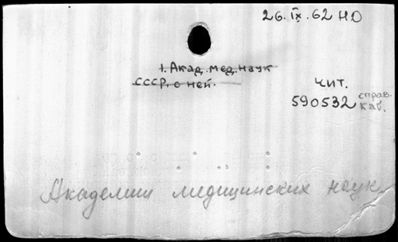 26.IX.62 НО
1. Акад. мед. наук
СССР. о ней.
чит.
590532 справ.
каб.
Академии медицинских наук